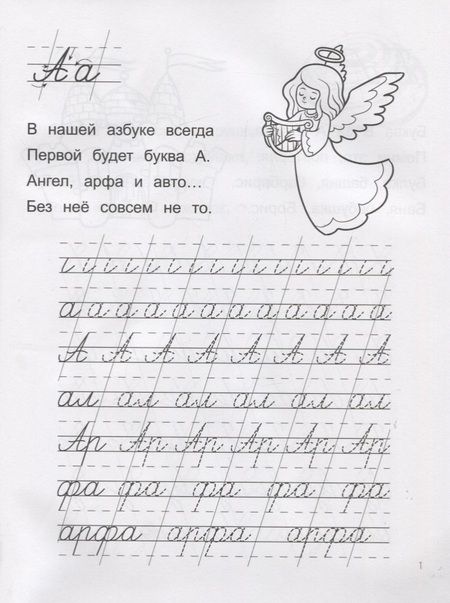 А а
В нашей азбуке всегда
Первой будет буква А.
Ангел, арфа и авто...
Без неё совсем не то.
а а а а а а а а а а а а а
А А А А А А А А
ал ал ал ал ал ал
Ар Ар Ар Ар Ар Ар
фа фа фа фа фа
арфа арфа арфа
1